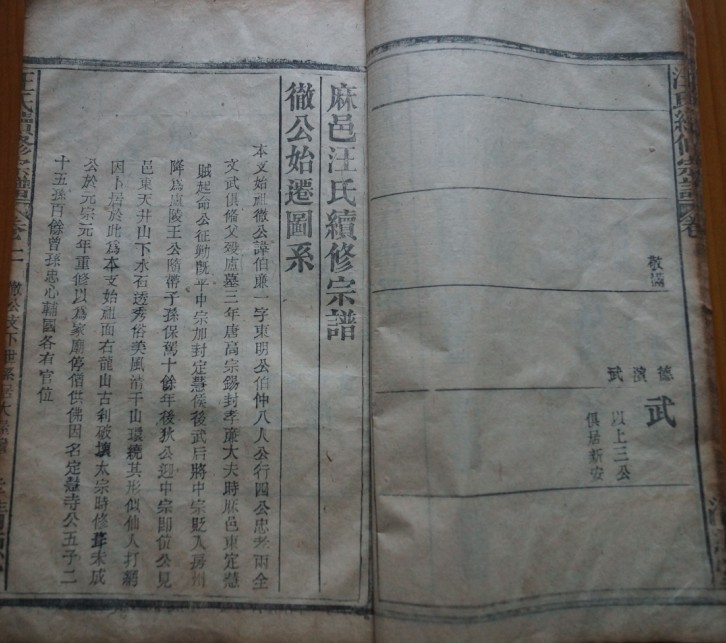 敬
德
濱
武
武
以上三公
俱居新安
麻邑汪氏續修宗譜
徹公始遷圖系
本支始祖徹公諱伯廉一字東明公伯仲八人公行四公忠孝兩全
文武俱備父歿廬墓三年唐高宗錫封孝廉大夫時麻邑東定慧
賊起命公征勦既平中宗加封定慧侯後武后將中宗貶入房州
降為廬陵王公隨帶子孫保駕十餘年後狄公迎中宗即位公見
邑東天井山下水石透秀俗美風清于山環繞其形似仙人打網
因卜居於此為本支始祖面右龍山古刹破壞太宗時修葺未成
公於元宗元年重修以為家廟停僧供佛因名定慧寺公五子二
十五孫百餘曾孫忠心輔國各有官位
汪氏續修宗譜